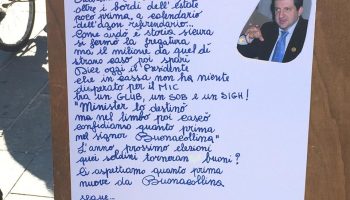 oltre i bordi dell'estate
poco prima, a calendario
dell'agon referendario...
Come andò è storia sicura
si fermò la fregatura,
ma il milione da quel dì
strano caso poi sparì
Dice oggi il Presidente
che in cassa non ha niente
disperato per il MIC
ha un GLUB, un SOB e un SIGH!
"Minister lo destinò
ma nel limbo poi cascò
confidiamo quanto prima
nel signor Buonacollina"
L'anno prossimo elezioni
quei soldini torneran buoni?
Ci aspettiamo quanto prima
nuove da Buonacollina
segue...